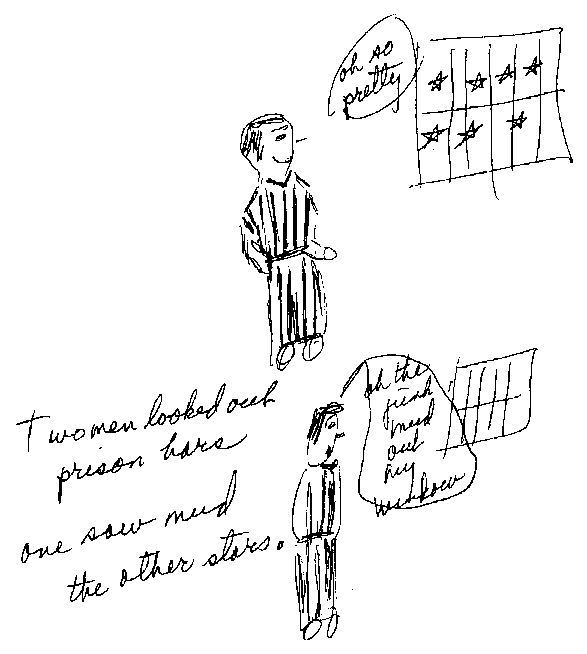 oh so
pretty
oh the
mud
out
my
window
Two men looked out
prison bars
one saw mud
the other stars.